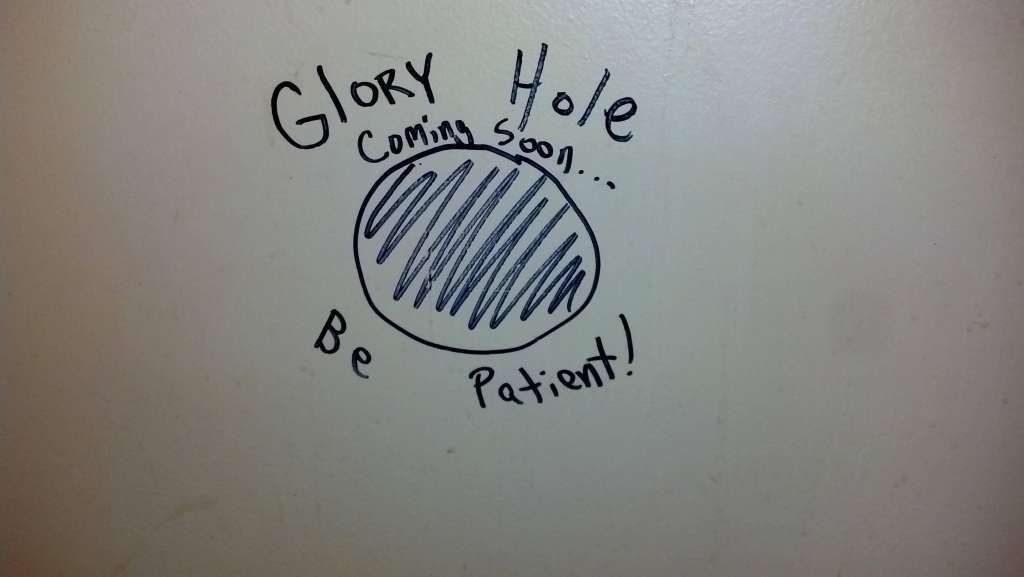 GlORY Hole
Coming Soon...
Be Patient!